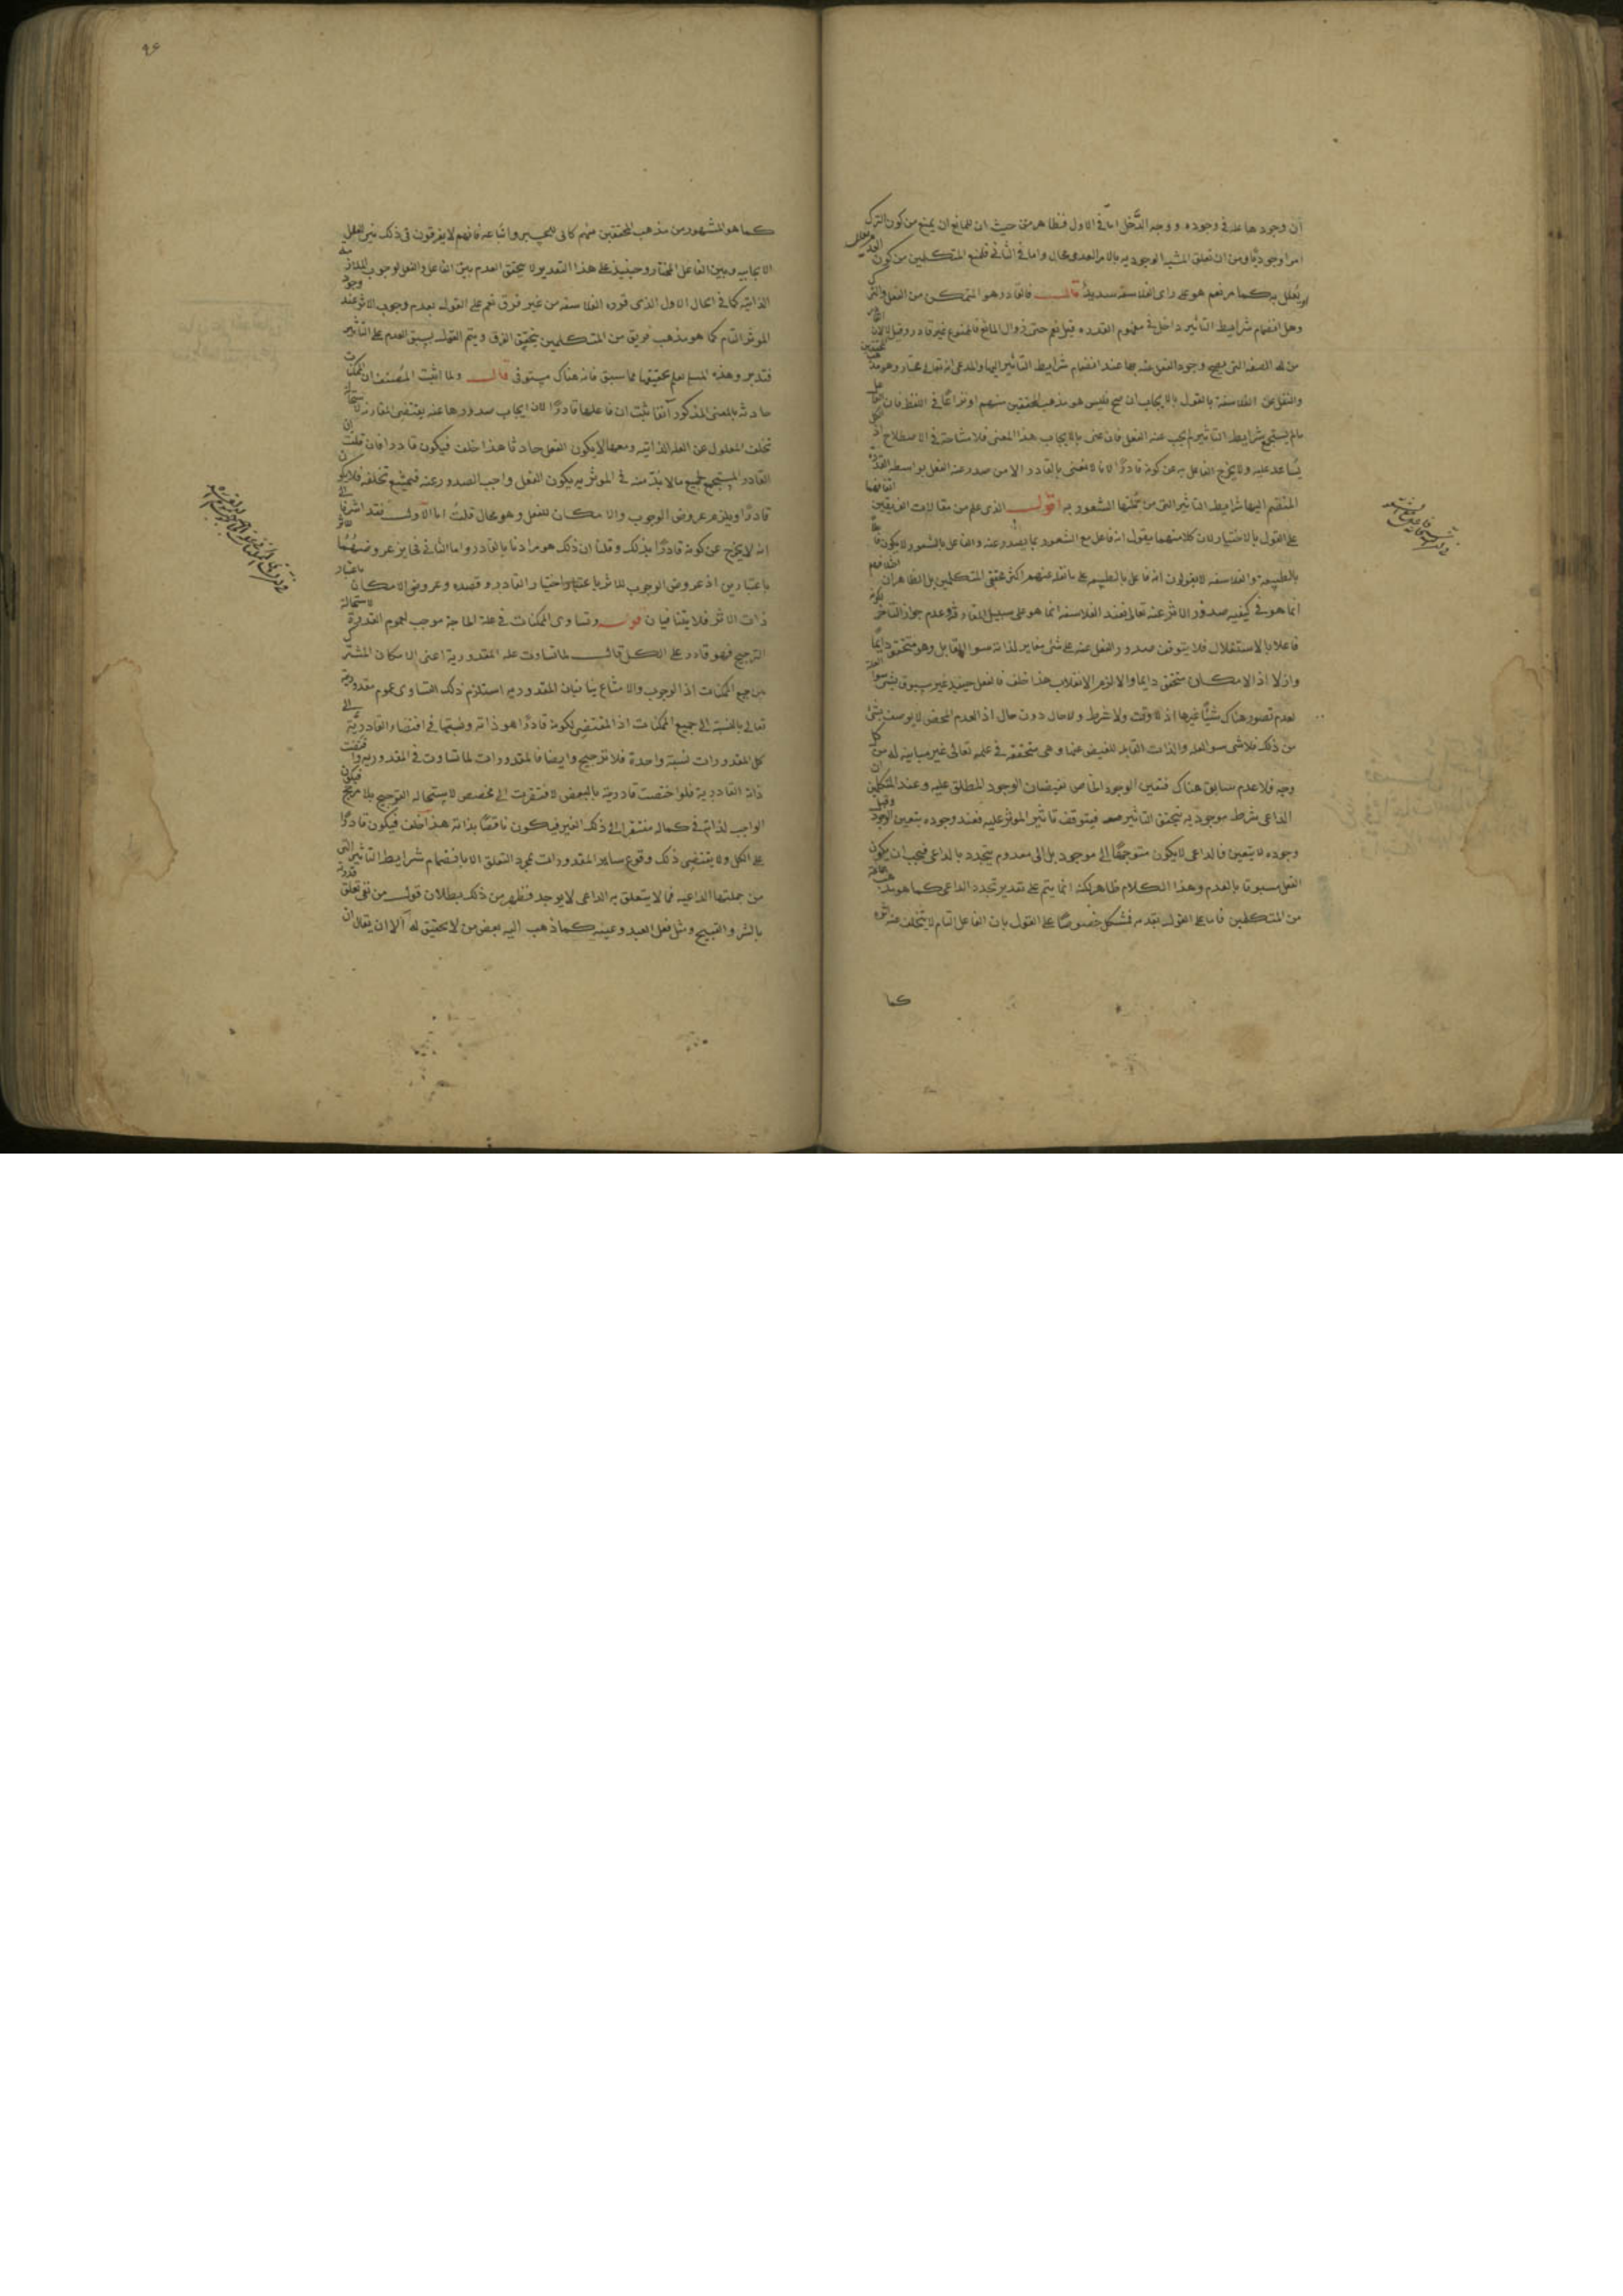 ان وجودها علة في وجوده ووجه الدخل اما في الاول فظاهر من حيث ان للمانع ان يمنع من كون الترك
امرا وجوديا ومن ان تعلق المشية الوجودية بالامر العدمي محال واما في الثاني فلمنع المتكلمين من كون العدم
يعلل به كما مر نعم هو على راي الفلاسفة سديد قال فالقادر هو المتمكن من الفعل والترك
وهل انضمام شرايط التاثير داخل في مفهوم القدرة قيل نعم حتى زوال المانع فالممنوع غير قادر وقيل لا لان القادر
من له الصفة التي يصح وجود الفعل عنه بها عند انضمام شرايط التاثير اليها والمدعى انه تعالى مختار وهو مذهب المحققين
والنقل عن الفلاسفة بالقول بالايجاب ان صح فليس هو مذهب المحققين منهم او نزاعا في اللفظ فان الفاعل
مالم يستجمع شرايط التاثير لم يجب عنه الفعل فان عنى بالايجاب هذا المعنى فلا مشاحة في الاصطلاح اذ الكل
يساعد عليه ولا يخرج الفاعل به عن كونه قادرا لانا لا نعنى بالقادر الا من صدر عنه الفعل بواسطة القدرة
المنضم اليها شرايط التاثير التي من جملتها الشعور به اقول الذي علم من مقالات الفريقين اتفاقهما
على القول بالاختيار لان كلا منهما يقول انه فاعل مع الشعور بما يصدر عنه والفاعل بالشعور لا يكون فاعلا
بالطبيعة والفلاسفة لا يقولون انه فاعل بالطبيعة على ما نقله عنهم اكثر محققي المتكلمين بل الظاهر ان الخلاف
انما هو في كيفية صدور الاثر عنه تعالى فعند الفلاسفة انما هو على سبيل المقارنة وعدم جواز التاخر لكونه
فاعلا بالاستقلال فلا يتوقف صدور الفعل عنه على شئ مغاير لذاته سوا القابل وهو متحقق دايما
وازلا اذ الامكان متحقق دايما والا لزم الانقلاب هذا خلف فالفعل حينيذ غير مسبوق بشئ سوا العلة
لعدم تصور هناك شيئا غيرها اذ لا وقت ولا شرط ولا حال دون حال اذ العدم المحض لا يوصف بشئ
من ذلك فلا شئ سوا العلة والذات القابلة للفيض عنها وهي متحققة في علمه تعالى غير مباينة له من كل
وجه فلا عدم سابق هناك فتعين الوجود الخاص بفيضان الوجود المطلق عليه وعند المتكلمين ان
الداعي شرط موجود به يتحقق التاثير معه فيتوقف تاثير الموثر عليه فعند وجوده يتعين الوجود وقبل
وجوده لا يتعين فالداعي لا يكون متوجها الى موجود بل الى معدوم يتجدد بالداعي فيجب ان يكون
الفعل مسبوقا بالعدم وهذا الكلام ظاهر لكنه انما يتم على تقدير تجدد الداعي كما هو مذهب جماعة
من المتكلمين فاما على القول بقدمه فمشكل خصوصا على القول بان الفاعل التام لا يتخلف عنه اثره
كما
٩٤
كما هو المشهور من مذهب المحققين منهم كابي الحسين واتباعه فانهم لا يفرقون في ذلك بين العلل
الايجابية وبين الفاعل المختار وحينيذ على هذا التقدير لا يتحقق العدم بين الفاعل والفعل لوجوب المقارنة
الذاتية كما في الحال الاول الذي قرره الفلاسفة من غير فرق نعم على القول بعدم وجوب الاثر عند وجود
الموثر التام كما هو مذهب فريق من المتكلمين يتحقق الفرق ويتم القول بسبق العدم على التاثير
فتدبر وهذه المسئلة يعلم تحقيقها مما سبق فانه هناك مستوفى قال ولما اثبت المصنف ان الممكنات
حادثة بالمعنى المذكور آنفا ثبت ان فاعلها قادرا لان ايجاب صدورها عنه يقتضي المقارنة لاستحالة
تخلف المعلول عن العلة الذاتية ومعها لا يكون الفعل حادثا هذا خلف فيكون قادرا فان قلت ان
القادر المستجمع لجميع مالا بد منه في الموثرية يكون الفعل واجب الصدور عنه فيمتنع تخلفه فلا يكون
قادرا ويلزم عروض الوجوب والامكان للفعل وهو محال قلت اما الاول فقد اشرنا الى
انه لا يخرج عن كونه قادرا بذلك وقلنا ان ذلك هو مرادنا بالقادر واما الثاني فجايز عروضهما للاثر
باعتبارين اذ عروض الوجوب للاثر باعتبار اختيار القادر وقصده وعروض الامكان باعتبار
ذات الاثر فلا يتنافيان قوله وتساوي الممكنات في علة الحاجة موجب لعموم القدرة لاستحالة
الترجيح فهو قادر على الكل قال لما تساوت علة المقدورية اعنى الامكان المشترك
بين جميع الممكنات اذ الوجوب والامتناع ينافيان المقدورية استلزم ذلك التساوي عموم مقدوريته
تعالى بالنسبة الى جميع الممكنات اذ المقتضي لكونه قادرا هو ذاته ونسبتها في اقتضاء القادرية الى
كل المقدورات نسبة واحدة فلا ترجيح وايضا فالمقدورات لما تساوت في المقدورية واقتضت
ذاته القادرية فلو اختصت قادريته بالبعض لافتقرت الى مخصص لاستحالة الترجيح بلا مرجح فيكون
الواجب لذاته في كماله مفتقرا الى ذلك الغير فيكون ناقصا بذاته هذا خلف فيكون قادرا
على الكل ولا يقتضي ذلك وقوع ساير المقدورات بمجرد التعلق الا بانضمام شرايط التاثير التي
من جملتها الداعية فما لا يتعلق به الداعي لا يوجد فظهر من ذلك بطلان قول من نفى تعلق قدرته
بالشر والقبيح ومثل فعل العبد وعينه كما ذهب اليه بعض من لا تحقيق له الا ان يقال ان